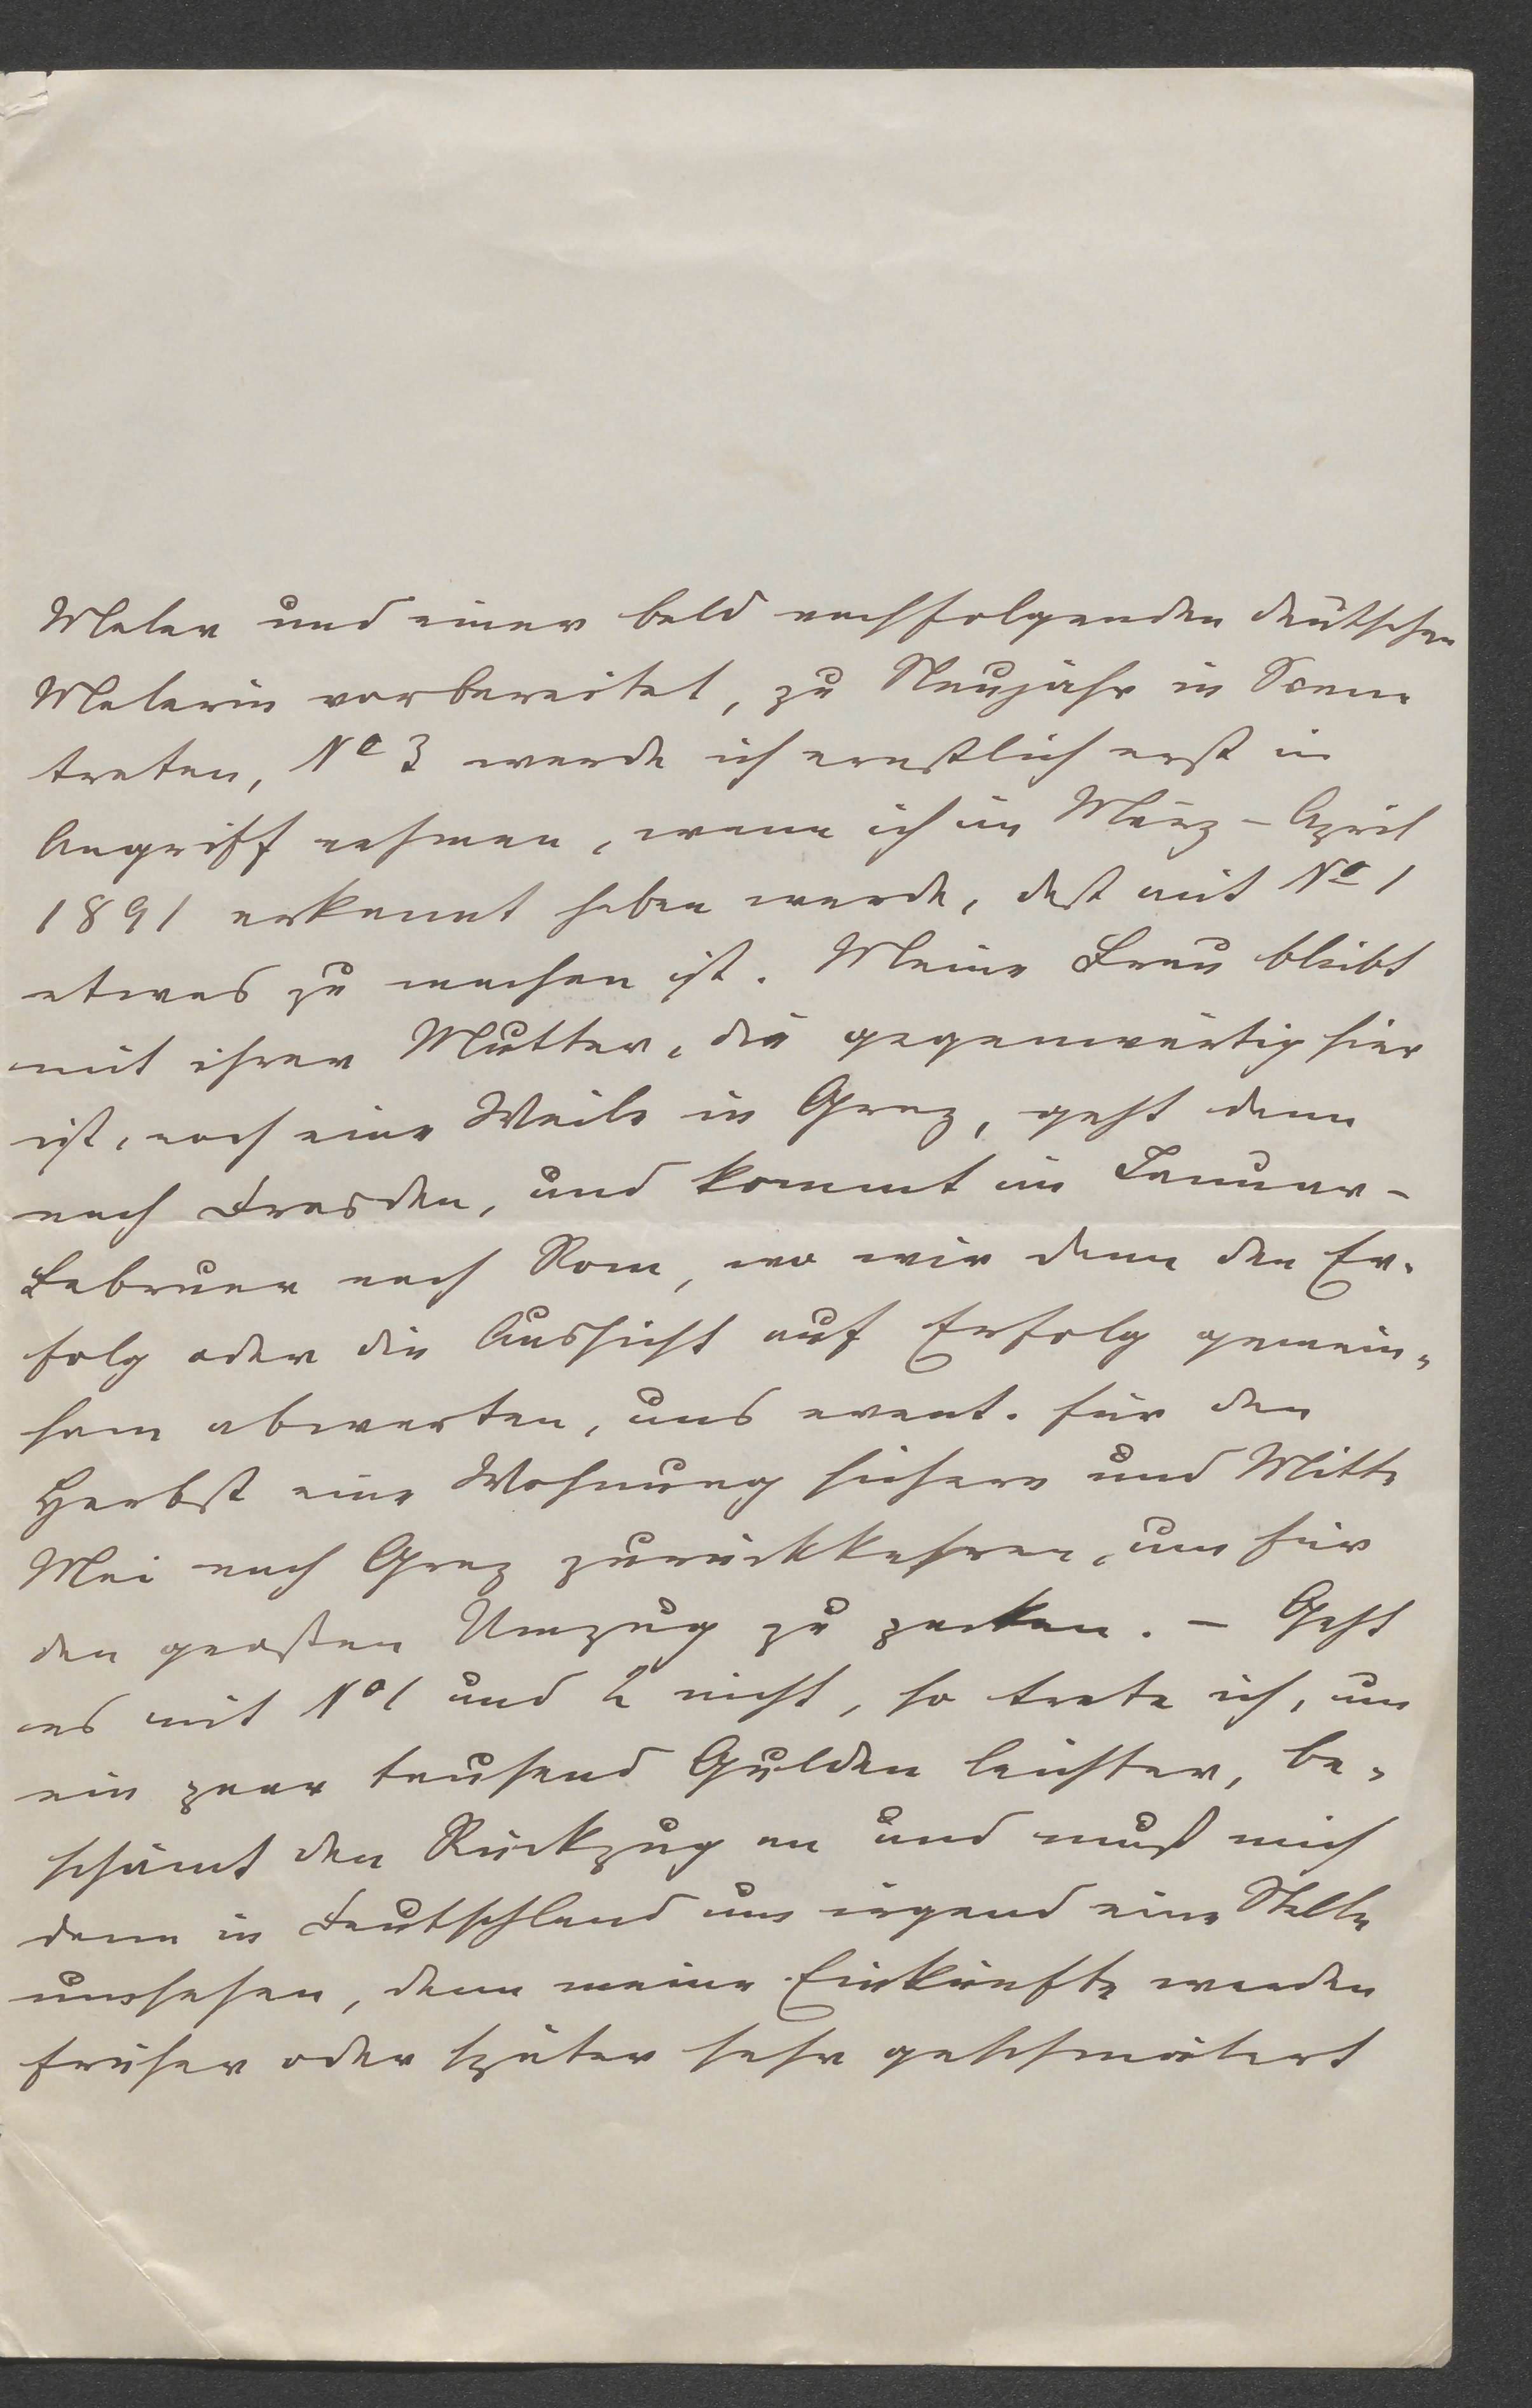 Maler und einer bald nachfolgenden deutschen
Malerin vorbereitet, zu Neujahr in Scene
treten, No 3 werde ich ernstlich erst in
Angriff nehmen, wenn ich im März - April
1891 erkannt haben werde, daß mit No 1
etwas zu machen ist. Meine Frau bleibt
mit ihrer Mutter, die gegenwärtig hier
ist, noch eine Weile in Graz, geht dann
nach Dresden, und kommt im Januar -
Februar nach Rom, wo wir dann den Er-
folg oder die Aussicht auf Erfolg gemein-
sam abwarten, uns event. für den
Herbst eine Wohnung sichern und Mitte
Mai nach Graz zurückkehren, um für
den großen Umzug zu packen. - Geht
es mit No 1 und 2 nicht, so trete ich, um
ein paar tausend Gulden leichter, be-
schämt den Rückzug an und muß mich
dann in Deutschland um irgend eine Stelle
umsehen, denn meine Einkünfte werden
früher oder später sehr geschmälert